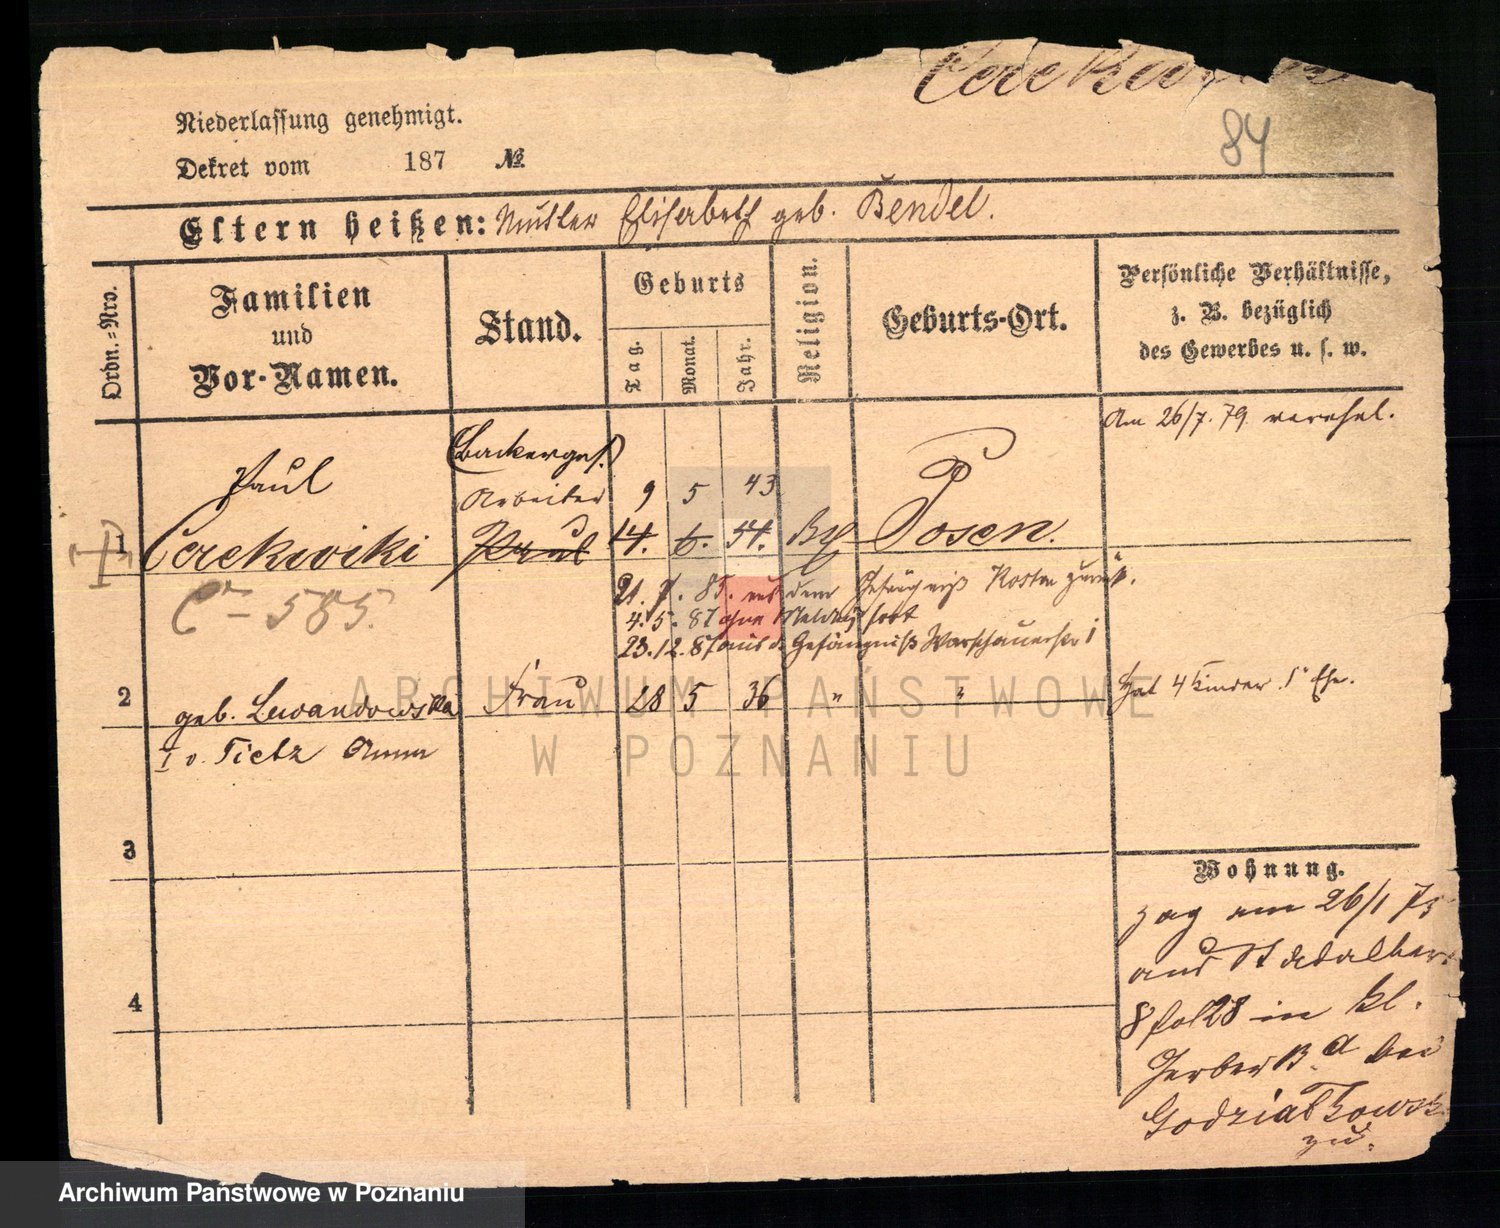 Niederlassung genehmigt.
84
Dekret vom 187 №
Eltern heißen: Mutter Elisabeth geb. Bendel.
Ordn.-Nro.
Familien
und
Vor-Namen.
Stand.
Geburts
Tag.
Monat.
Jahr.
Religion.
Geburts-Ort.
Persönliche Verhältnisse,
z. B. bezüglich
des Gewerbes u. s. w.
Am 26/7. 79. verehel.
(Backerges.)
Paul Arbeiter 9 5 43
1 Cerekwiki 14. 6. 54. Posen.
C 585.
21. 7. 85. aus dem Gefängniß Kosten zurück.
4. 5. 87 ohne Meldung fort
23. 12. 87 aus d. Gefängniß
2 geb. Lewandowska Frau 28 5 36 " " Hat 4 Kinder. 1 Ehe.
I v. Tietz Anna
ARCHIWUM PAŃSTWOWE
W POZNANIU
3
Wohnung.
zog am 26/1 75
aus St Adalber
8 in kl.
Gerber bei
Godziatkowsk
zu.
4
Archiwum Państwowe w Poznaniu